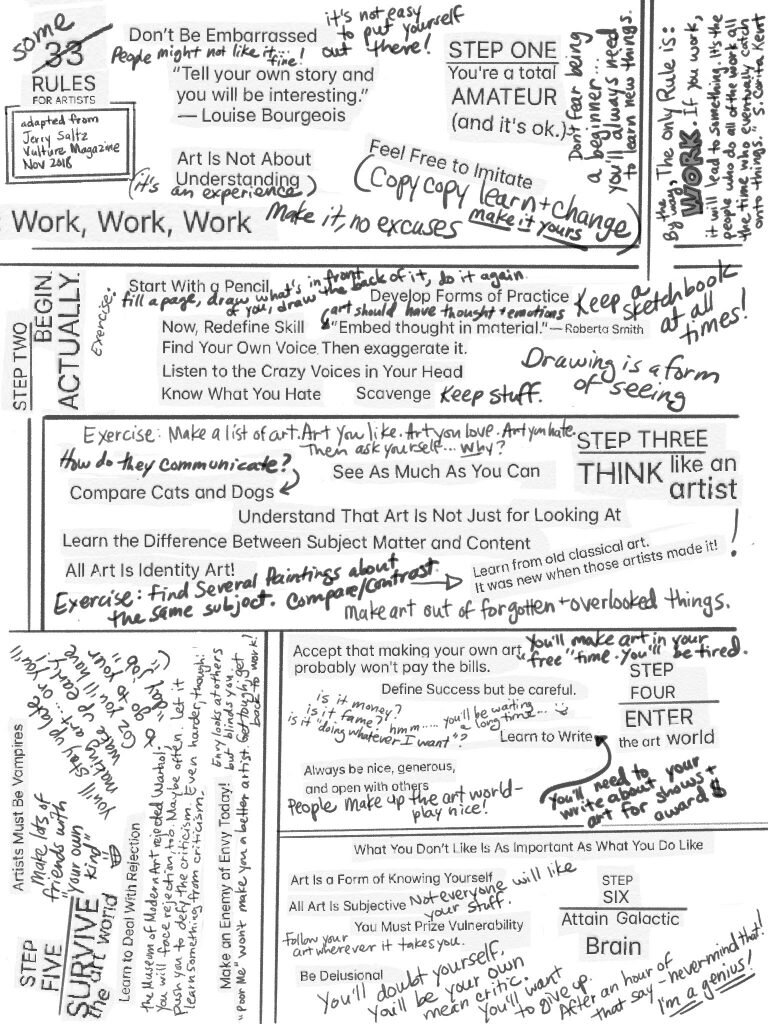 some
33
RULES
FOR ARTISTS
adapted from
Jerry Saltz
Vulture Magazine
Nov 2018
Don't Be Embarrassed
it's not easy
to put yourself
out there!
People might not like it.... fine!
"Tell your own story and
you will be interesting."
— Louise Bourgeois
Art Is Not About
Understanding
(it's an experience)
Work, Work, Work
Make it, no excuses
STEP ONE
You're a total
AMATEUR
(and it's ok.)
Don't fear being
a beginner...
you'll always need
to learn new things.
Feel Free to Imitate
(Copy copy learn + change)
make it yours
By the way, The only Rule is:
WORK. If you work,
it will lead to something. It's the
people who do all of the work all
the time who eventually catch
onto things." S. Corita Kent
STEP TWO
BEGIN.
ACTUALLY.
Start With a Pencil
Exercise:
fill a page, draw what's in front
of you, draw the back of it, do it again.
Develop Forms of Practice
Keep a
sketchbook
at all
times!
art should have thought + emotions
Now, Redefine Skill
"Embed thought in material."— Roberta Smith
Find Your Own Voice, Then exaggerate it.
Listen to the Crazy Voices in Your Head
Know What You Hate
Scavenge Keep stuff.
Drawing is a form
of seeing
Exercise: Make a list of art. Art you like. Art you love. Art you hate.
Then ask yourself... why?
STEP THREE
THINK like an
artist
!
How do they communicate?
See As Much As You Can
Compare Cats and Dogs
Understand That Art Is Not Just for Looking At
Learn the Difference Between Subject Matter and Content
All Art Is Identity Art!
Learn from old classical art.
It was new when those artists made it!
Exercise: find Several Paintings about
the same subject. Compare/Contrast
Make art out of forgotten + overlooked things.
STEP
FIVE
SURVIVE
the art world
Artists Must Be Vampires
You'll stay up late
making art... or you'll
wake up early!
Coz you'll have
to go to your
"day job"
Make lots of
friends with
"your own
kind"
Learn to Deal With Rejection
The Museum of Modern Art rejected Warhol.
You will face rejection, too. Maybe often. Let it
push you to defy the criticism. Even harder, though:
learn something from criticism.
Make an Enemy of Envy Today!
Envy looks at others
but blinds you
"Poor Me" won't make you a better artist. Get tough, get
back to work!
Accept that making your own art
probably won't pay the bills.
You'll make art in your
"free" time. You'll be tired.
STEP
FOUR
ENTER
the art world
Define Success but be careful.
is it money?
is it fame?
is it "doing whatever I want"?
hmm..... you'll be waiting
a long time...
Learn to Write
You'll need to
write about your
art for shows +
award $
Always be nice, generous,
and open with others
People make up the art world-
play nice!
What You Don't Like Is As Important As What You Do Like
STEP
SIX
Attain Galactic
Brain
Art Is a Form of Knowing Yourself
All Art Is Subjective
Not everyone will like
your stuff.
You Must Prize Vulnerability
Follow your
art wherever it takes you.
Be Delusional
You'll doubt yourself,
you'll be your own
mean critic.
You'll want
to give up.
After an hour of
that say - nevermind that!
I'm a genius!